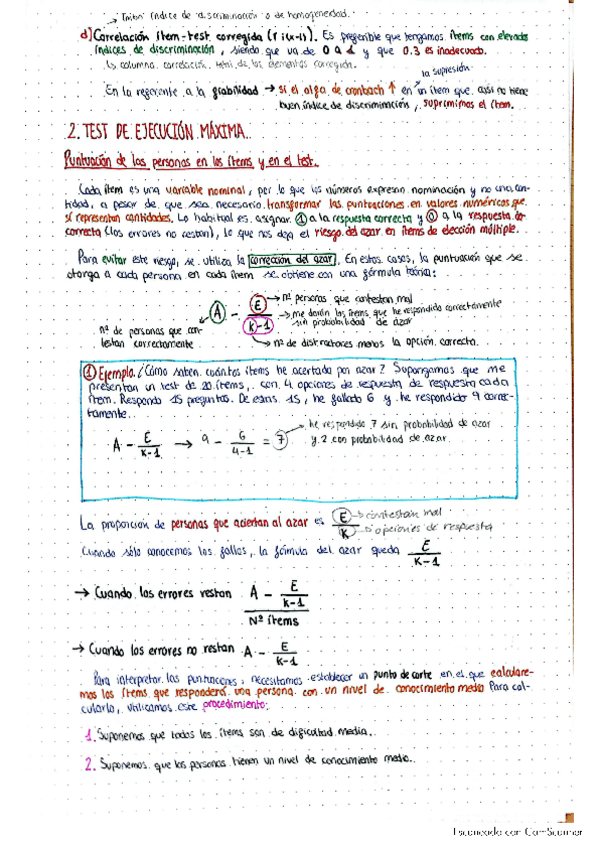 índice de discriminación o de homogeneidad.
d) Correlación ítem-test corregida (r i(x-i)). Es preferible que tengamos ítems con elevados
índices de discriminación, siendo que va de 0 a 1 y que 0.3 es inadecuado.
↳ columna correlación total de los elementos corregida.
la supresión
En lo referente a la fiabilidad → si el alfa de cronbach ↑ en un ítem que aún no tiene
buen índice de discriminación, suprimimos el ítem.
2. TEST DE EJECUCIÓN MÁXIMA.
Puntuación de las personas en los ítems y en el test.
Cada ítem es una variable nominal, por lo que los números expresan nominación y no una can-
tidad, a pesar de que sea necesario transformar las puntuaciones en valores numéricos que
sí representan cantidades. Lo habitual es asignar 1 a la respuesta correcta y 0 a la respuesta
correcta (los errores no restan), lo que nos deja el riesgo del azar en ítems de elección múltiple.
Para evitar este riesgo, se utiliza la corrección del azar. En estos casos, la puntuación que se
otorga a cada persona en cada ítem se obtiene con una fórmula teórica:
A - E/K-1
nº personas que contestan mal
me darán los ítems que he respondido correctamente
sin probabilidad de azar
nº de personas que con-
testan correctamente
nº de distractores menos la opción correcta.
1 Ejemplo. ¿Cómo saber cuántos ítems he acertado por azar? Supongamos que me
presentan un test de 20 ítems, con 4 opciones de respuesta de respuesta cada
ítem. Respondo 15 preguntas. De estas 15, he fallado 6 y he respondido 9 correc-
tamente.
A - E/K-1 → 9 - 6/4-1 = 7
he respondido 7 sin probabilidad de azar
y 2 con probabilidad de azar.
La proporción de personas que aciertan al azar es E/K
→ contestan mal
→ opciones de respuesta
Cuando sólo conocemos los fallos, la fórmula del azar queda E/K-1
→ Cuando los errores restan A - E/K-1
Nº ítems
→ Cuando los errores no restan A - E/K-1
Para interpretar las puntuaciones, necesitamos establecer un punto de corte en el que calculare-
mos los ítems que responderá una persona con un nivel de conocimiento medio. Para cal-
cularlo, utilizamos este procedimiento:
1. Suponemos que todos los ítems son de dificultad media.
2. Suponemos que las personas tienen un nivel de conocimiento medio.
Escaneado con CamScanner